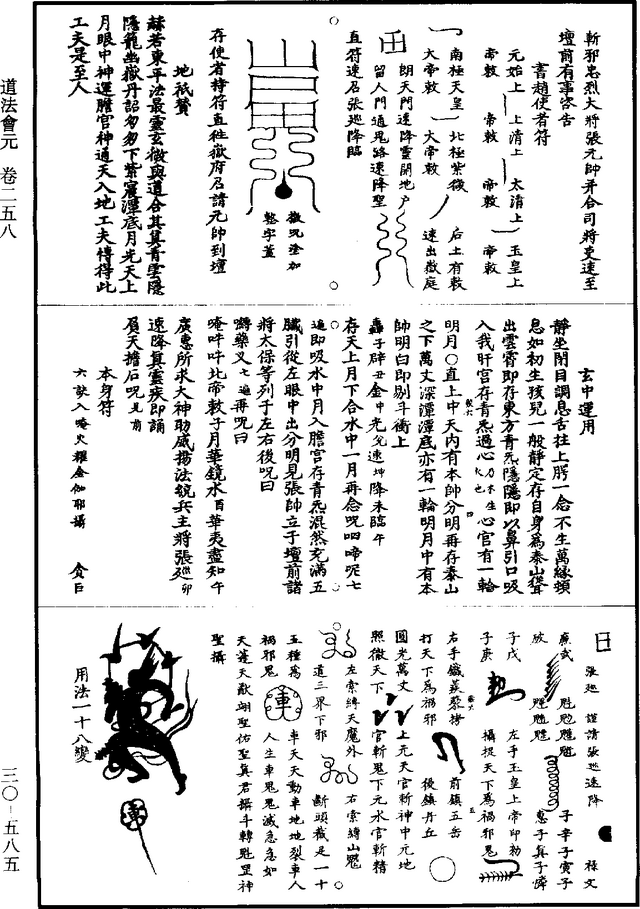 斬邪忠烈大將張元帥并合司將吏速至
壇前有事咨告
書趙使者符
元始上 上清上 太清上 玉皇上
帝敕 帝敕 帝敕 帝敕
南極天皇 北極紫微 后土有敕
大帝敕 大帝敕 速出嶽庭
朗天門速降靈開地户
留人門通鬼路速降聖
直符速召張巡降臨
敕咒塗加
慜字蓋
存使者持符直往嶽府召請元帥到壇
地祇贊
赫若東平法最靈玄微與道合其真青雲隱
隱籠幽嶽丹詔匆匆下紫宸潭底月光天上
月眼中神運膽宫神通天入地工夫轉得此
工夫是至人
玄中運用
静坐閉目調息舌拄上腭一念不生萬緣頓
息如初生孩兒一般静定存自身爲泰山聳
出雲霄即存東方青炁隱隱即以鼻引口吸
入我肝宫存青炁過心心宫有一輪
明月○直上中天内有本帥分明再存泰山
之下萬丈深潭潭底亦有一輪明月中有本
帥明白即剔斗衝上
轟子辟丑金中光父速坤降未臨午
存天上月下合水中一月再念咒四啼呢七
遍即吸水中月入膽宫存青炁混然充滿五
臟引從左眼中出分明見張帥立于壇前諸
將太保等列于左右後咒曰
嚩藥叉七遍再咒曰
唵吽吽北帝敕子月華鏡水百華夷盡知午
廣惠所求大神助威揚法貌兵主將張巡卯
速降真靈疾即誦
夤天擔石咒見前
本身符
六訣入唵火耀金伽耶攝 貪巨
張巡 謹請張巡速降 禄文
廉武 子辛子寅子
破 惠子真子濟
子戌 左手玉皇上帝印勑
子庚 攝捉天下爲禍邪鬼
右手鐵蒺藜拷 前鎮五岳
打天下爲禍邪 後鎮丹丘
圓光萬丈 上元天官斬神中元地
照徹天下 官斬鬼下元水官斬精
左索縛天魔外 右索縛山魈
道三界下邪 斷頭截足一十
五種爲 車天天動車地地裂車人
禍邪鬼 人生車鬼鬼滅急急如
天蓬天猷翊聖佑聖真君攝斗轉魁罡神
聖攝
用法一十八變
道法會元 卷二五八
三〇–五八五